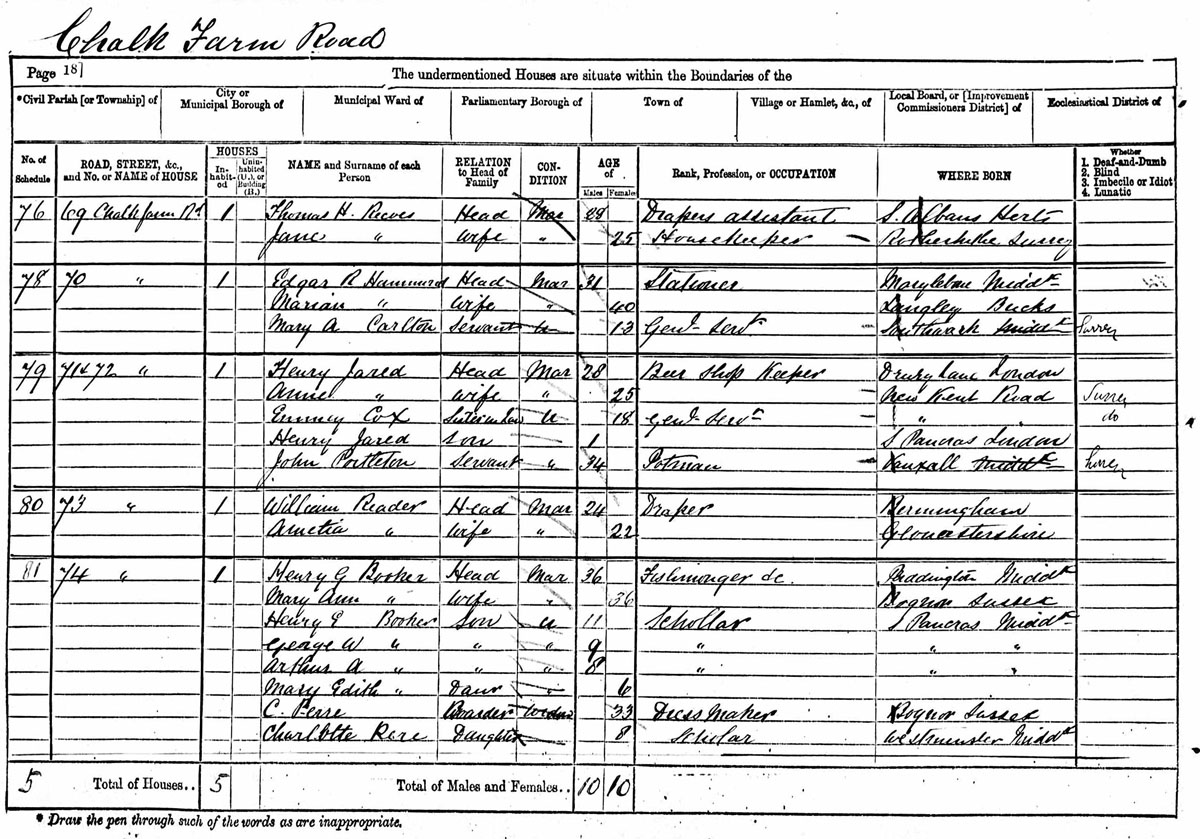 Chalk Farm Road
Page 18]
The undermentioned Houses are situate within the Boundaries of the
*Civil Parish [or Township] of
City or Municipal Borough of
Municipal Ward of
Parliamentary Borough of
Town of
Village or Hamlet, &c., of
Local Board, or [Improvement Commissioners District] of
Ecclesiastical District of
No. of Schedule
ROAD, STREET, &c., and No. or NAME of HOUSE
HOUSES
Inhabited
Uninhabited (U.), or Building (B.)
NAME and Surname of each Person
RELATION to Head of Family
CONDITION
AGE of
Males
Females
Rank, Profession, or OCCUPATION
WHERE BORN
Whether
1. Deaf-and-Dumb
2. Blind
3. Imbecile or Idiot
4. Lunatic
76 69 Chalk farm Rd 1 Thomas H. Reeves Head Mar 28 Drapers assistant S. Albans Herts
Jane " Wife " 25 Housekeeper Rotherhithe Surrey
78 70 " 1 Edgar R Hammond Head Mar 31 Stationer Marylebone Middx
Marian " Wife " 40 Langley Bucks
Mary A Carlton Servant U 13 Genl Servt Southwark Middx Surrey
79 71 & 72 " 1 Henry Jared Head Mar 28 Beer Shop Keeper Drury Lane London
Annie " Wife " 25 New Kent Road Surrey
Emmey Cox Sister in Law U 18 Genl Servt " do
Henry Jared Son 1 S Pancras London
John Portleton Servant " 34 Potman Vauxall Middx Surrey
80 73 " 1 William Reader Head Mar 24 Draper Bermingham
Amelia " Wife " 22 Gloucestershire
81 74 " 1 Henry G Booker Head Mar 36 Fishmonger &c. Paddington Middx
Mary Ann " Wife " 36 Bognor Sussex
Henry E Booker Son U 11 Schollar S Pancras Middx
George W " " " 9 " " "
Arthur A " " " 8 " " "
Mary Edith " Daur " 6
C. Perre Boarder Widow 33 Dress Maker Bognor Sussex
Charlotte Daughter 8 Scholar Westminster Middx
5 Total of Houses.. 5 Total of Males and Females.. 10 10
* Draw the pen through such of the words as are inappropriate.